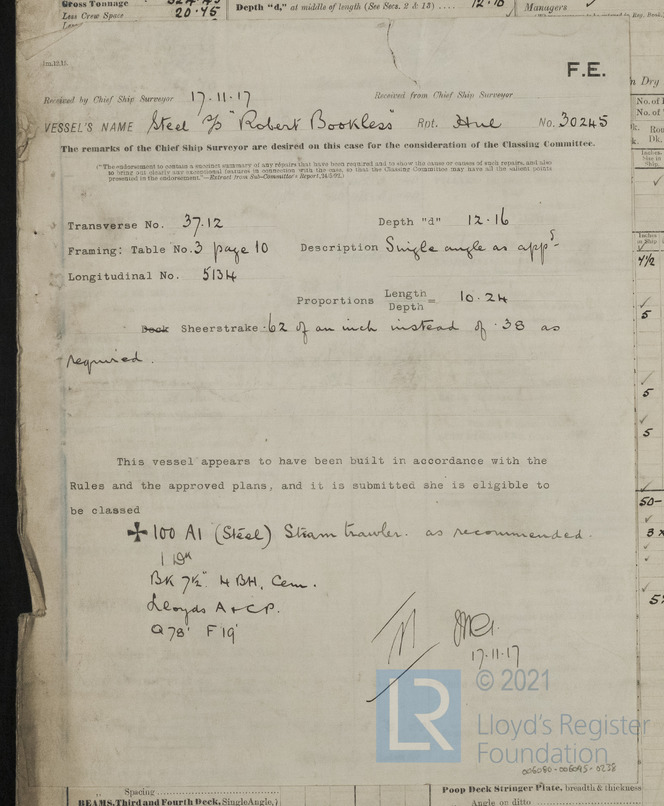 Gross Tonnage
Less Crew Space 20.45
Depth "d," at middle of length (See Secs. 2 & 13) .... 12.16
Managers
1m.12.15.
F.E.
Received by Chief Ship Surveyor 17.11.17 Received from Chief Ship Surveyor
VESSEL'S NAME Steel S/S "Robert Bookless" Rpt. Hul No. 30245
The remarks of the Chief Ship Surveyor are desired on this case for the consideration of the Classing Committee.
("The endorsement to contain a succinct summary of any repairs that have been required and to show the cause or causes of such repairs, and also
to bring out clearly any exceptional features in connection with the case, so that the Classing Committee may have all the salient points
presented in the endorsement."—Extract from Sub-Committee's Report,
Transverse No. 37.12 Depth "d" 12.16
Framing: Table No. 3 page 10 Description Single angle as appd
Longitudinal No. 5134
Proportions Length/Depth = 10.24
Sheerstrake .62 of an inch instead of .38 as
required.
This vessel appears to have been built in accordance with the
Rules and the approved plans, and it is submitted she is eligible to
be classed
✠ 100 A1 (Steel) Steam trawler. as recommended.
1 Dk
BK 7½" 4 BH, Cem.
Lloyds A & CP.
Q 78' F 19'
17.11.17
LR
© 2021
Lloyd's Register
Foundation
006080-006095-0238
Spacing
BEAMS, Third and Fourth Deck, Single Angle,
Poop Deck Stringer Plate, breadth & thickness
Angle on ditto